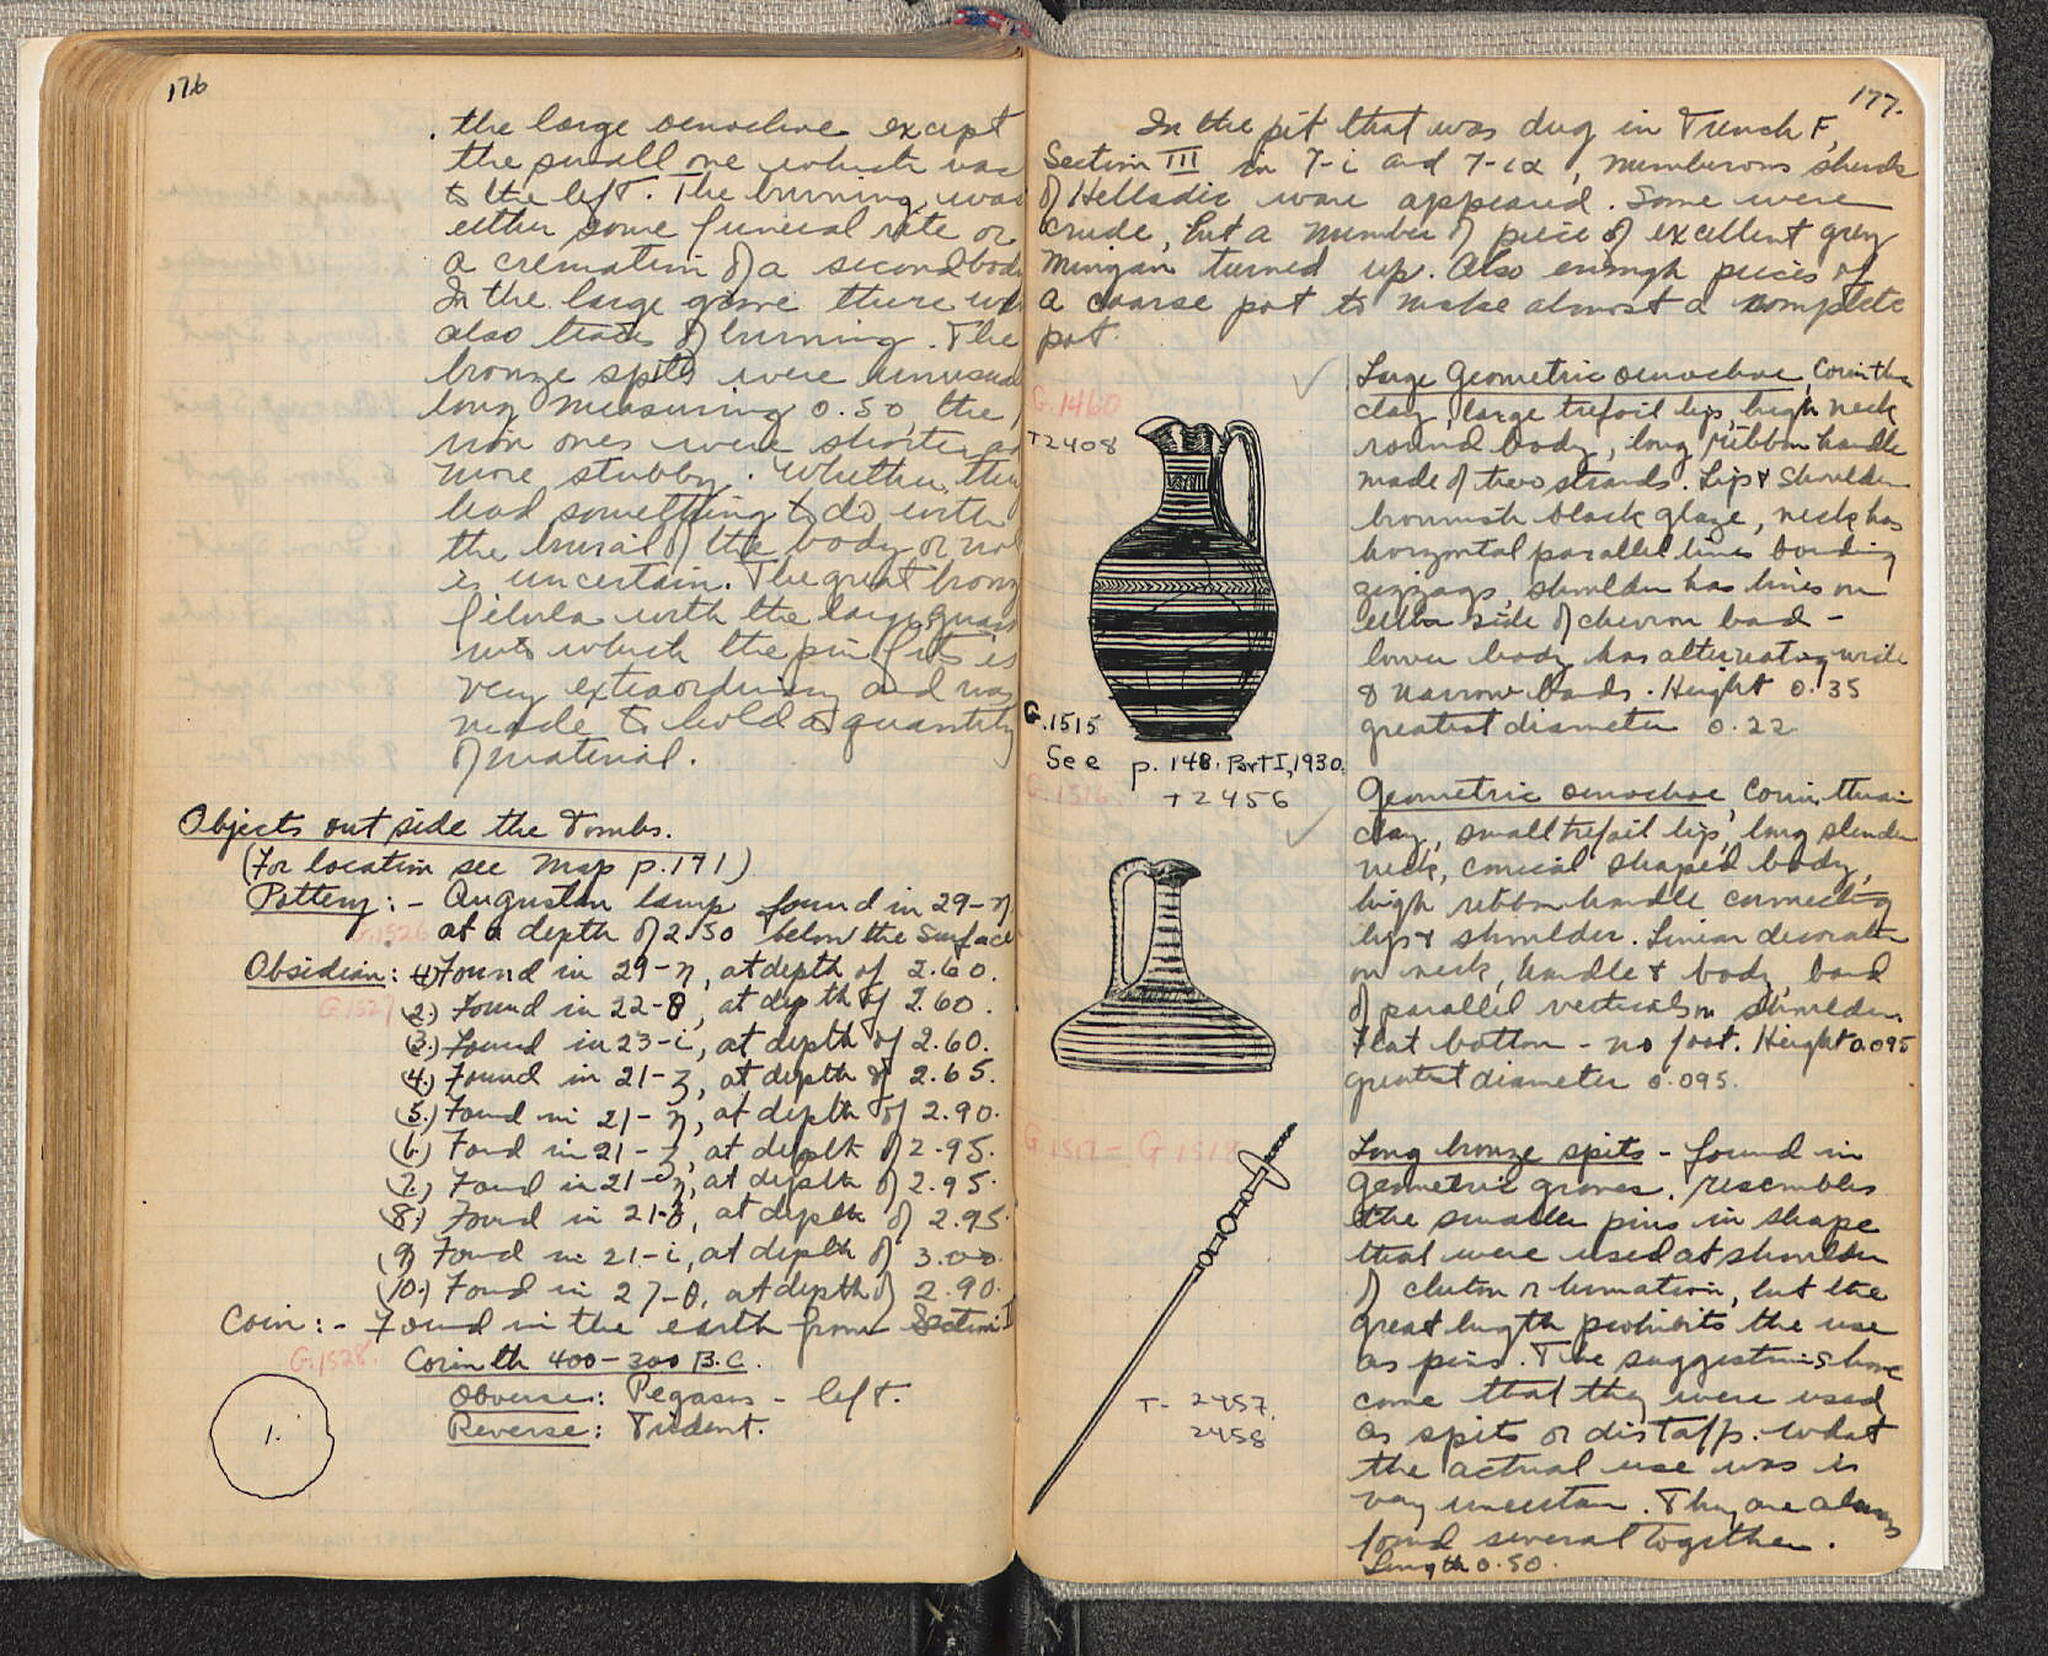 176
. the large oenochoe except
the small one which was
to the left. The burning was
either some funeral rite or
a cremation of a second body
In the large grave there was
also traces of burning. The
bronze spits were unusual
long measuring 0.50, the
iron ones were shorter an
more stubby. Whether they
had something to do with
the burial of the body or not
is uncertain. The great bronz
fibula with the large guard
into which the pin fits is
very extraordinary and was
made to hold a quantity
of material.
Objects out side the Tombs.
(For location see Map p.171)
Pottery: - Augustan lamp found in 29-η
G.1526 at a depth of 2.50 below the surface
Obsidian: (1) Found in 29-η, at depth of 2.60.
G.1527 (2.) Found in 22-θ, at depth of 2.60.
(3.) Found in 23-ι, at depth of 2.60.
(4.) Found in 21-ζ, at depth of 2.65.
(5.) Found in 21-η, at depth of 2.90.
(6.) Found in 21-ζ, at depth of 2.95.
(7.) Found in 21-η, at depth of 2.95.
(8.) Found in 21-θ, at depth of 2.95.
(9) Found in 21-ι, at depth of 3.00.
(10.) Found in 27-θ, at depth of 2.90.
Coin: - Found in the earth from Section II
G.1528. Corinth 400-300 B.C.
Obverse: Pegasus - left.
Reverse: Trident.
1.
177.
In the pit that was dug in Trench F,
Section III in 7-ι and 7-ια, numberous sherds
of Helladic ware appeared. Some were
crude, but a number of piece of excellent grey
Minyan turned up. Also enough pieces of
a coarse pot to make almost a complete
pot.
G.1460
T2408
Large Geometric oenochoe, Corinthian
clay, large trefoil lip, high neck
round body, long ribbon handle
made of two strands. Lip & shoulder
brownish black glaze, neck has
horizontal parallel lines bonding
zigzags, shoulder has lines on
either side of chevron band -
lower body has alternating wide
& narrow bands. Height 0.35
greatest diameter 0.22
G.1515
See p. 148. Part I, 1930.
G.1516. T2456
Geometric oenochoe, Corinthian
clay, small trefoil lip, long slender
neck, conical shaped body,
high ribbon handle connecting
lip & shoulder. Linear decoration
on neck, handle & body, band
of parallel verticals on shoulder.
Flat bottom - no foot. Height 0.095
greatest diameter 0.095.
G 1517 - G 1518
Long bronze spits - found in
Geometric graves, resembles
the smaller pins in shape
that were used at shoulder
of chiton or himation, but the
great length prohibits the use
as pins. The suggestions have
come that they were used
as spits or distaffs. what
the actual use was is
very uncertain. They are always
found several together.
Length 0.50.
T- 2457.
2458